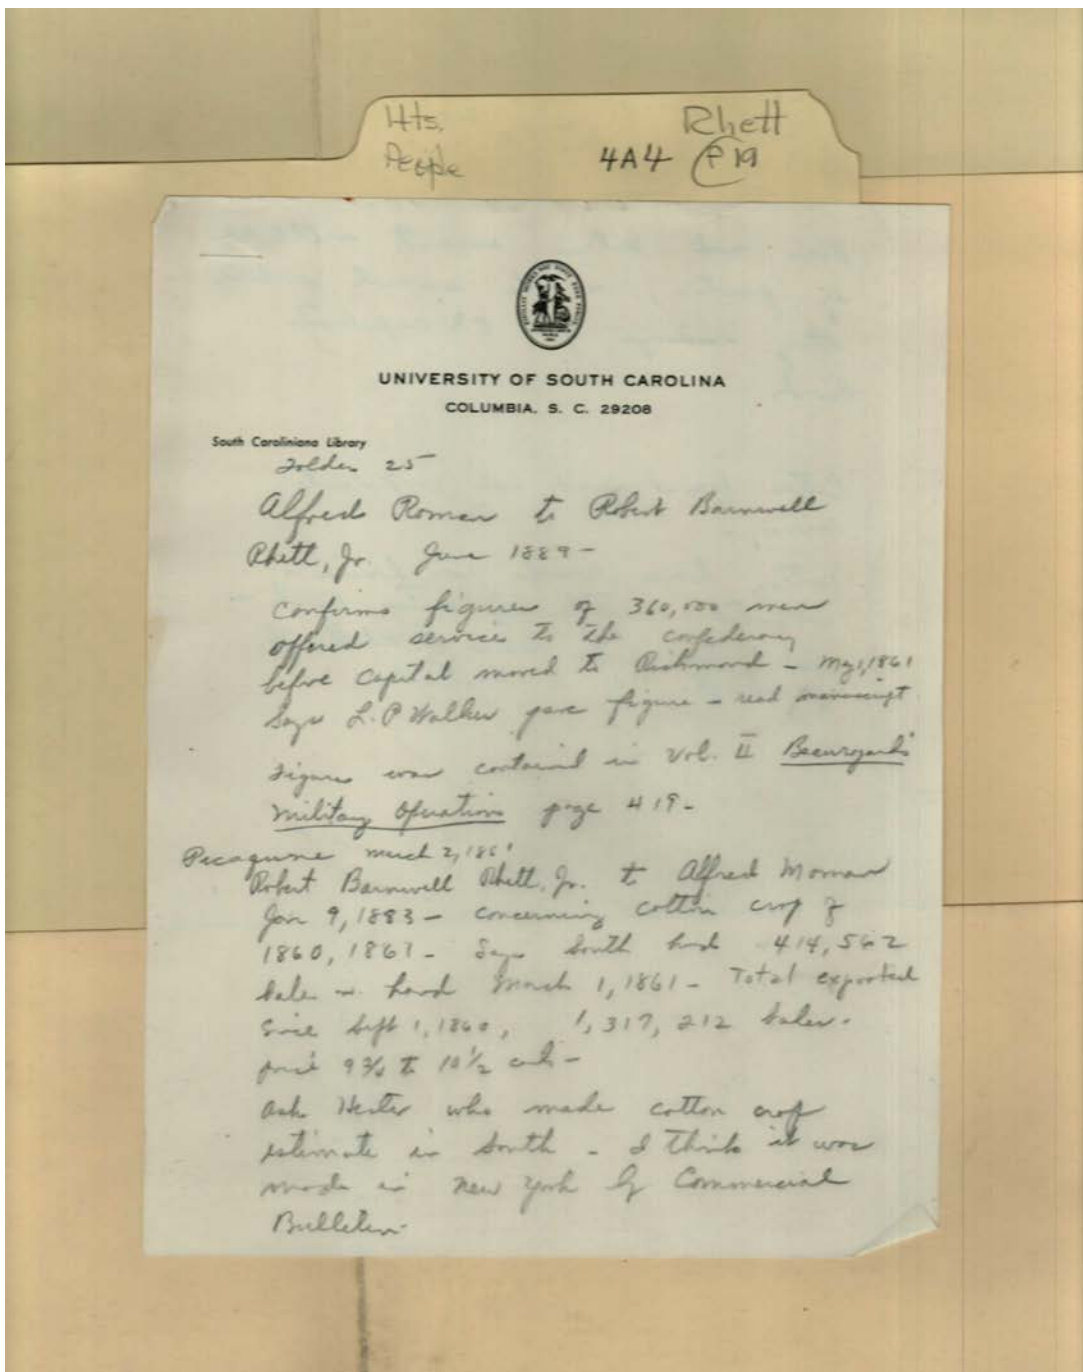 Hts. Rhett
People 4A4 P19
UNIVERSITY OF SOUTH CAROLINA
COLUMBIA, S. C. 29208
South Caroliniana Library
Folder 25
Alfred Roman to Robert Barnwell
Rhett, Jr. June 1889 -
Confirms figures of 360,000 men
offered services to the confederacy
before capital moved to Richmond - May 1, 1861
Says L. P Walker gave figure - read manuscript
Figure was contained in Vol. II Beauregard's
Military Operations page 419 -
Picayune March 2, 1861
Robert Barnwell Rhett, Jr. to Alfred Moman
Jan 9, 1883 - concerning cotton crop of
1860, 1861 - Says South had 414,562
bales on hand March 1, 1861 - Total exported
since Sept 1, 1860, 1,317,212 bales.
price 9 3/4 to 10 1/2 cents -
Ask Hester who made cotton crop
estimate in South - I think it was
made in New York by Commercial
Bulletin.